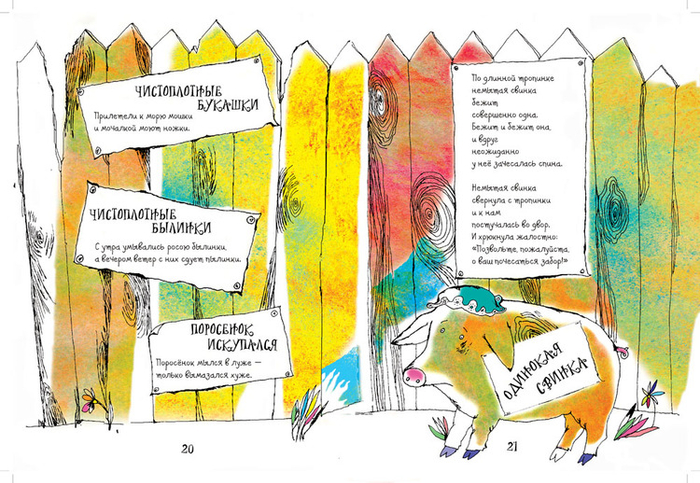 ЧИСТОПЛОТНЫЕ
БУКАШКИ
Прилетели к морю мошки
и мочалкой моют ножки.
ЧИСТОПЛОТНЫЕ
БЫЛИНКИ
С утра умывались росою былинки,
а вечером ветер с них сдует пылинки.
ПОРОСЁНОК
ИСКУПАЛСЯ
Поросёнок мылся в луже —
только вымазался хуже.
20
По длинной тропинке
немытая свинка
бежит
совершенно одна.
Бежит и бежит она,
и вдруг
неожиданно
у неё зачесалась спина.
Немытая свинка
свернула с тропинки
и к нам
постучалась во двор.
И хрюкнула жалостно:
«Позвольте, пожалуйста,
о ваш почесаться забор!»
ОДИНОКАЯ
СВИНКА
21